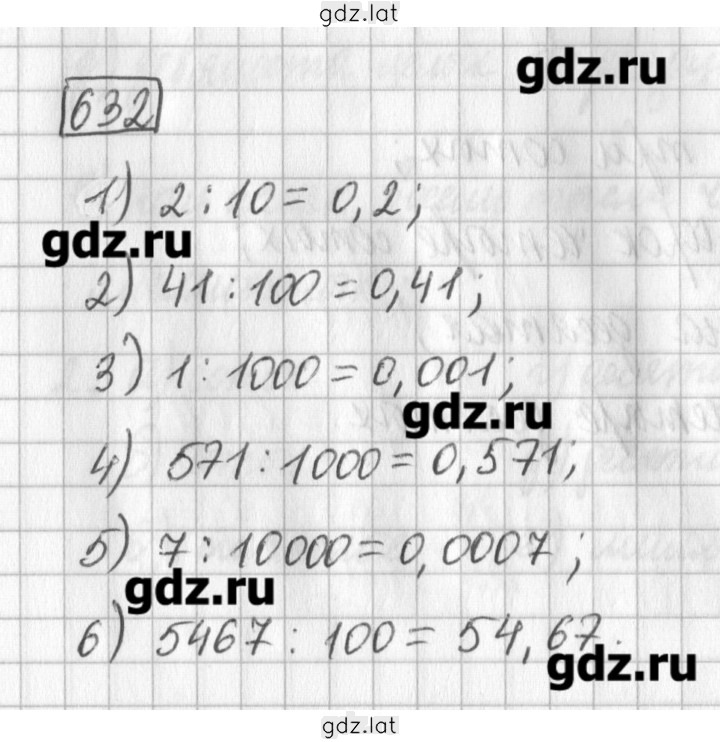 gdz.lat
gdz.ru
632
1) 2 : 10 = 0,2;
gdz.ru
2) 41 : 100 = 0,41;
3) 1 : 1000 = 0,001;
gdz.ru
4) 571 : 1000 = 0,571;
5) 7 : 10000 = 0,0007;
gdz.ru
6) 5467 : 100 = 54,67.
gdz.ru
gdz.lat